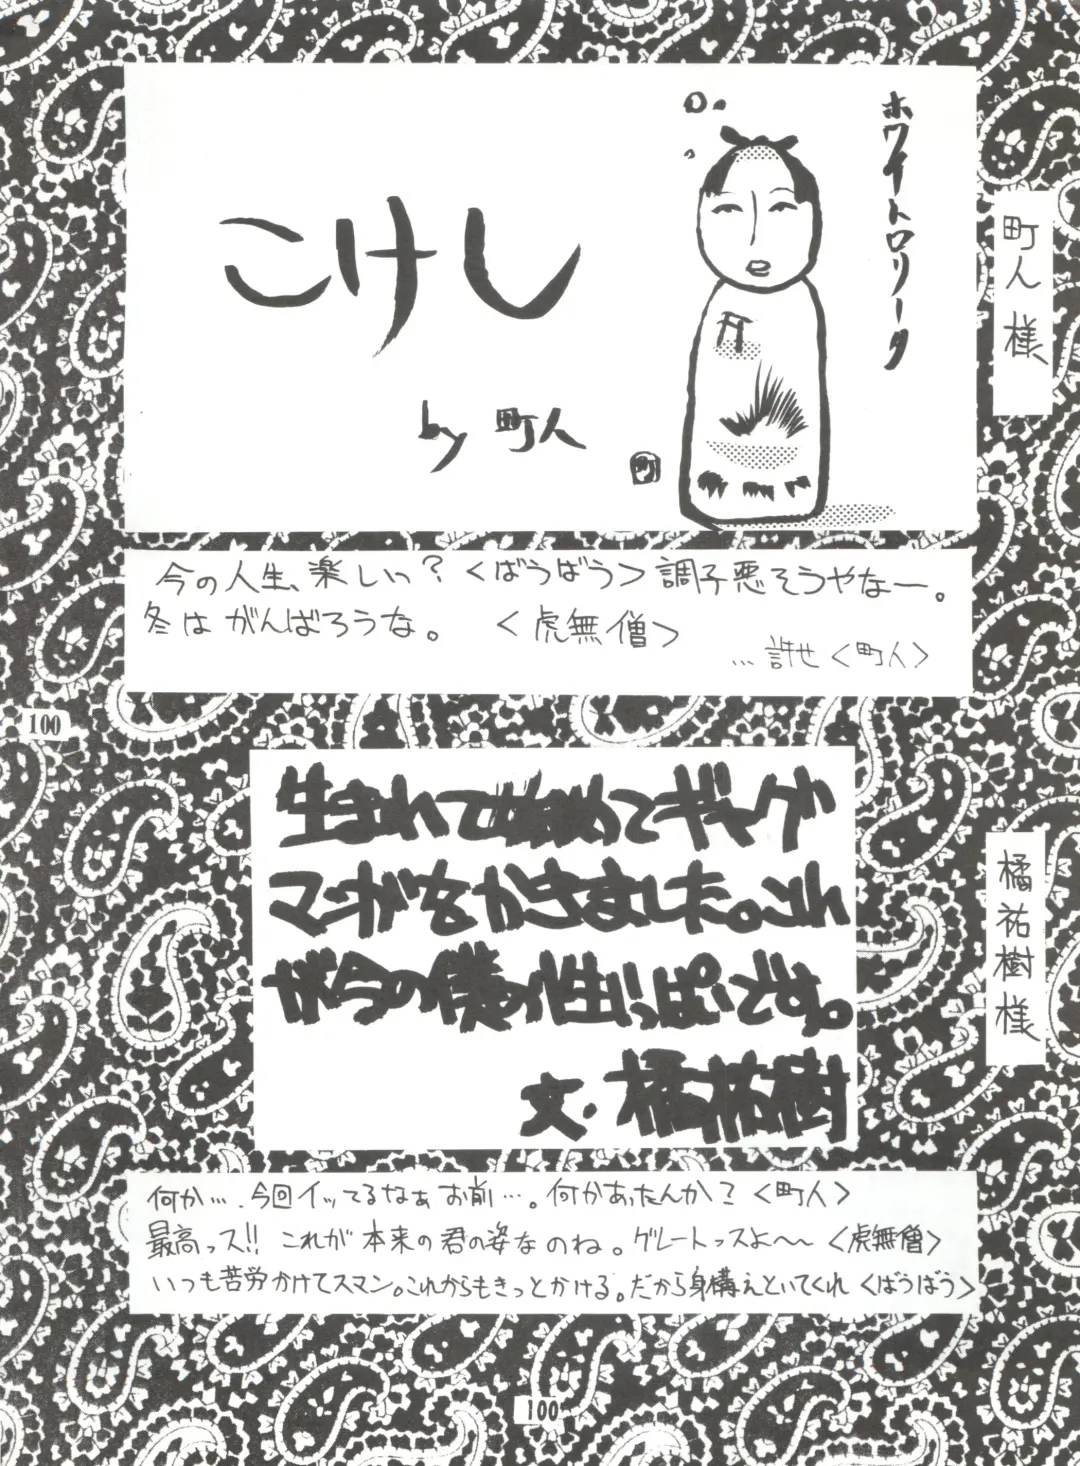 ホワイトロリータ
こけし
by 町人
町
町人様
今の人生、楽しい?〈ばうばう〉調子悪そうやなー。
冬はがんばろうな。〈虎無僧〉
…許せ〈町人〉
100
生まれて始めてギャグ
マンガをかきました。これ
が今の僕の精一っぱいです。
文・橘祐樹
橘祐樹様
何か…、今回イッてるなぁお前…。何かあったんか?〈町人〉
最高っス!!これが本来の君の姿なのね。グレートっスよ〜〜〈虎無僧〉
いつも苦労かけてスマン。これからもきっとかける。だから身構えといてくれ〈ばうばう〉
100